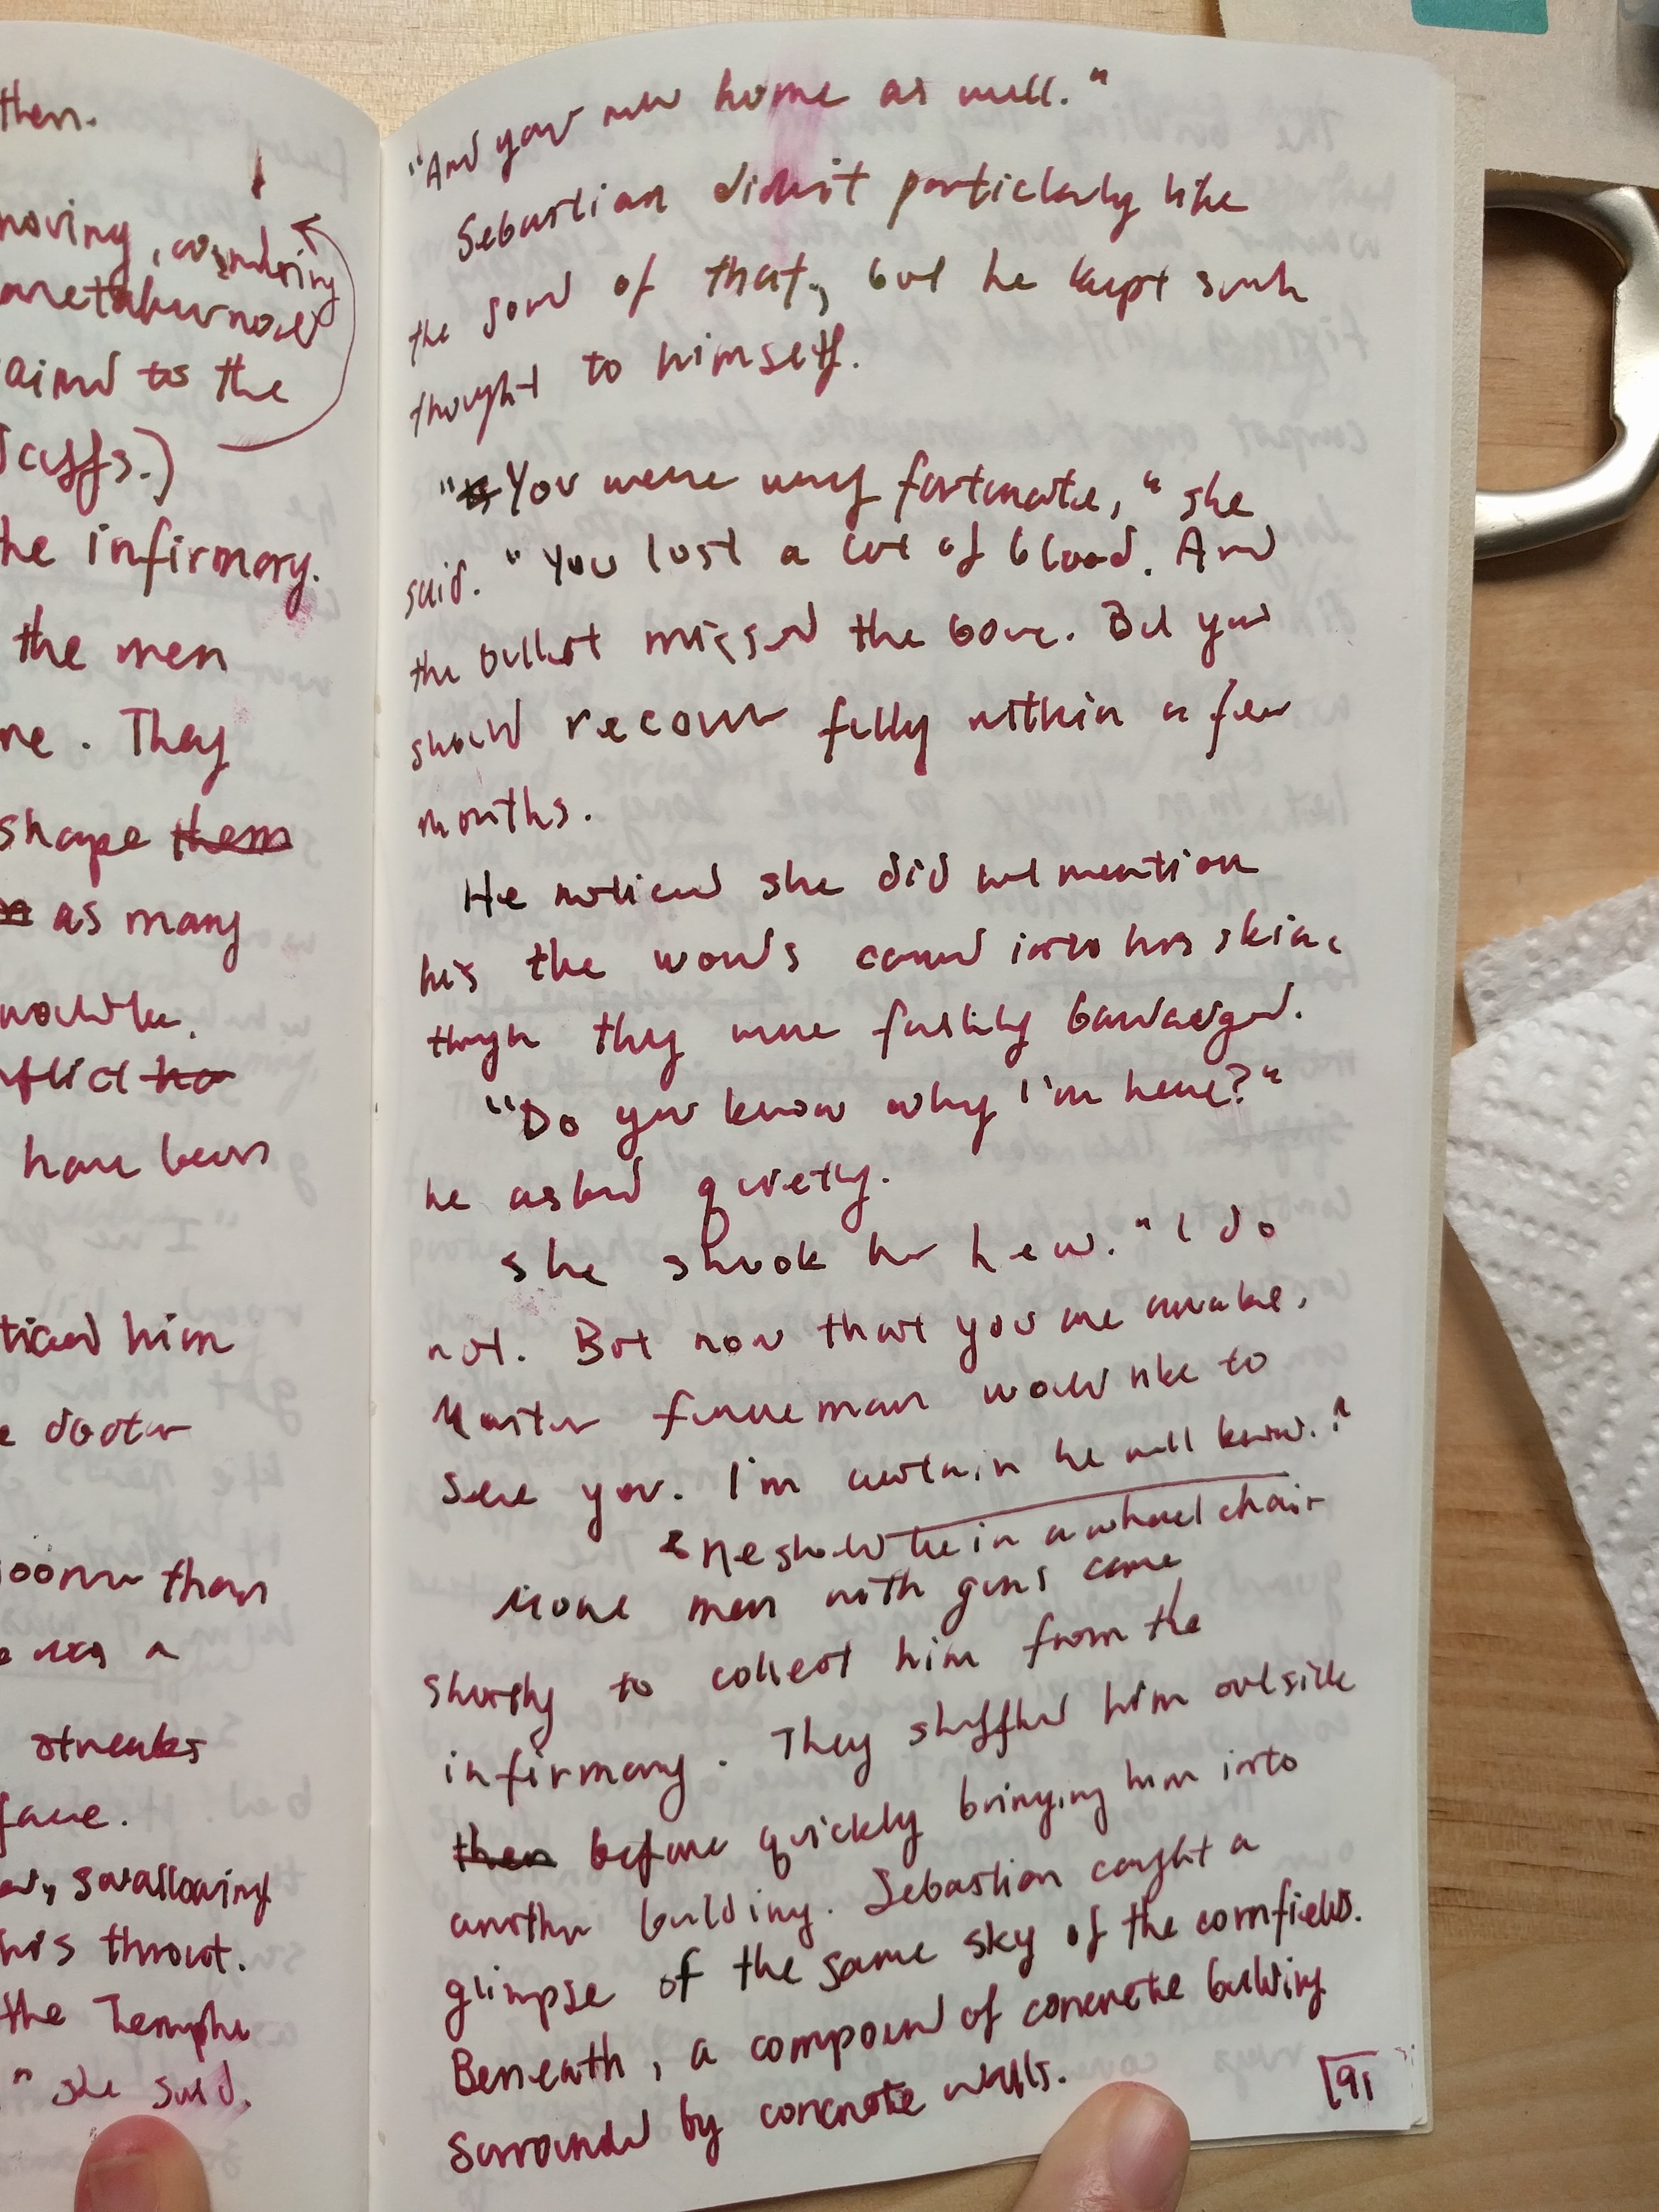 then.
moving, wondering
aimed to the
cuffs.)
he infirmary.
the men
ne. They
shape them
as many
would be.
inflict
have been
ticed him
doctor
sooner than
was a
streaks
face.
swallowing
his throat.
the Temple
" she said.
"And your new home as well."
Sebastian didn't particularly like
the sound of that, but he kept such
thought to himself.
"You were very fortunate," she
said. "You lost a lot of blood. And
the bullet missed the bone. But you
should recover fully within a few
months.
He noticed she did not mention
his the words carved into his skin,
though they were freshly bandaged.
"Do you know why I'm here?"
he asked quietly.
she shook her head. "I do
not. But now that you are awake,
Master would like to
see you. I'm certain he will know."
he should be in a wheel chair
More men with guns came
shortly to collect him from the
infirmary. They shuffled him outside
then before quickly bringing him into
another building. Sebastian caught a
glimpse of the same sky of the cornfields.
Beneath, a compound of concrete building
surrounded by concrete walls.
91